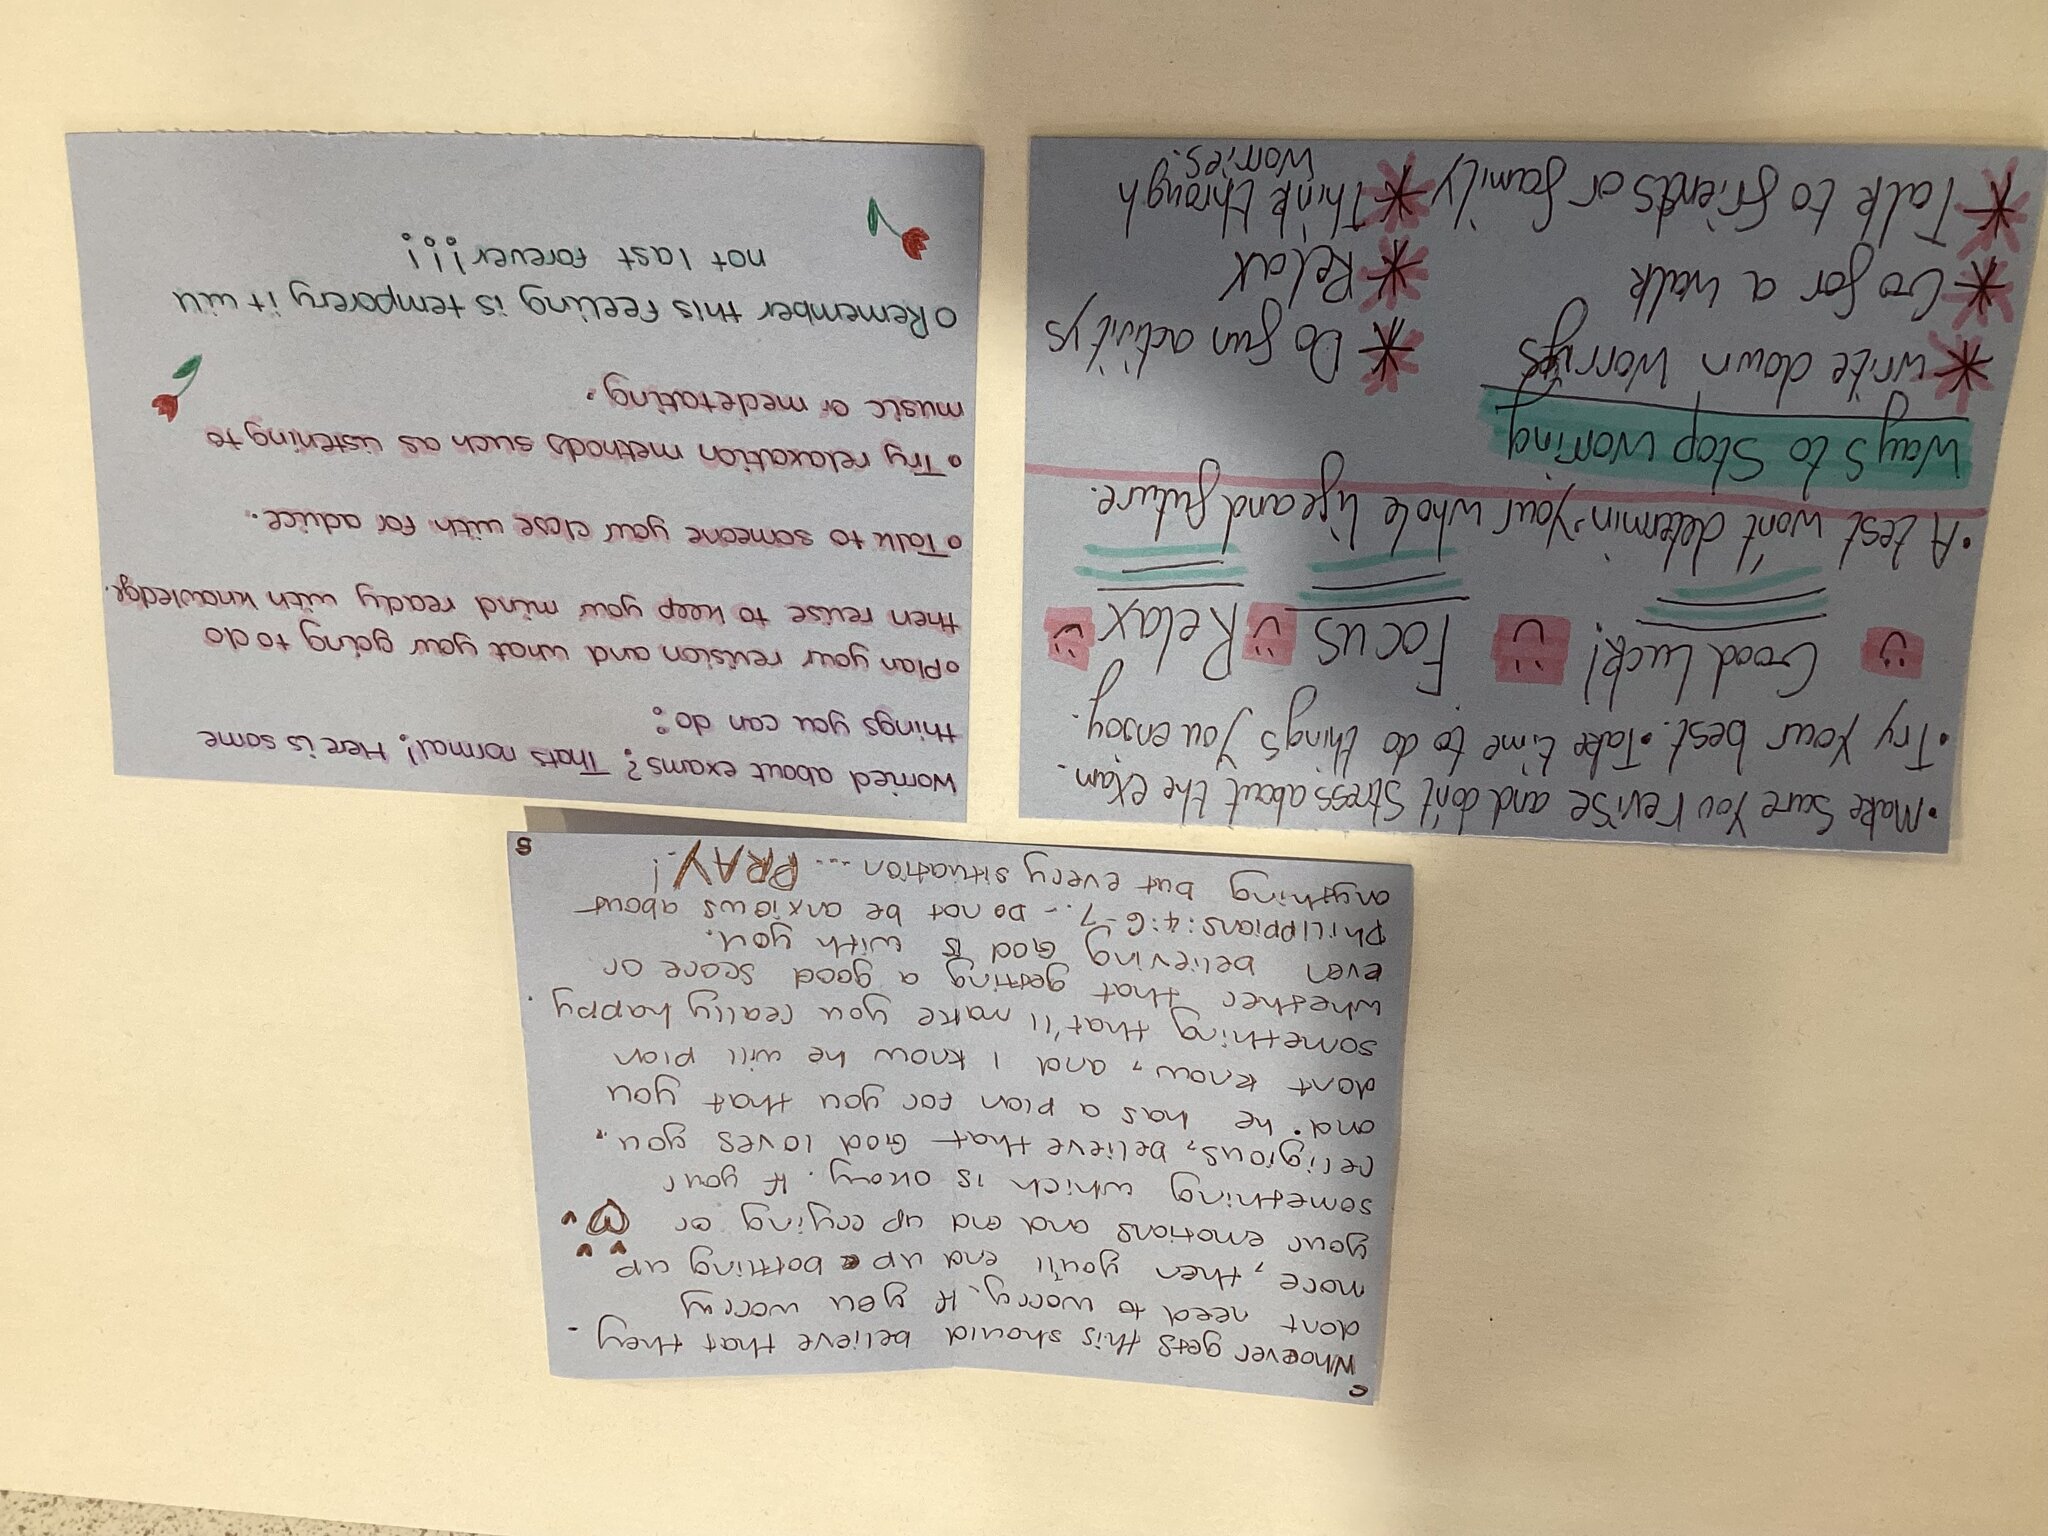 Whoever gets this should believe that they.
dont need to worry. If you worry
more, then you'll end up bottling up
your emotions and end up crying or
something which is okay. If your
religious, believe that God loves you,
and he has a plan for you that you
dont know, and I know he will plan
something that'll make you really happy.
whether that getting a good score or
even believing God is with you.
Philippians:4:6-7.- Do not be anxious about
anything but every situation... PRAY.!
•Make Sure You revise and don't Stress about the exam.
•Try Your best. •Take time to do things You enjoy.
Good Luck! Focus Relax
•A test won't determin Your whole life and future.
Ways to Stop worring
write down Worrys
Go for a walk
Talk to friends or family
Do fun activitys
Relax
Think through
Worries.
Worried about exams? Thats normal! Here is some
things you can do:
Plan your revision and what your going to do
then revise to keep your mind ready with knowledge.
Talk to someone your close with for advice.
Try relaxation methods such as listening to
music or medetating.
Remember this feeling is temporery it will
not last forever!!!